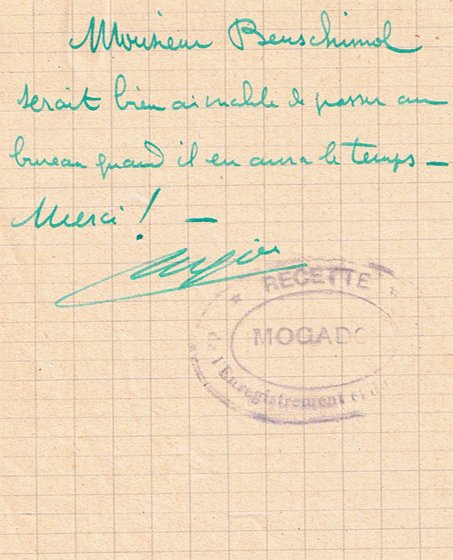 Monsieur Benschimol
serait bien aimable de passer au
bureau quand il en aura le temps —
Merci ! —
RECETTE
MOGADO
de l'Enregistrement et